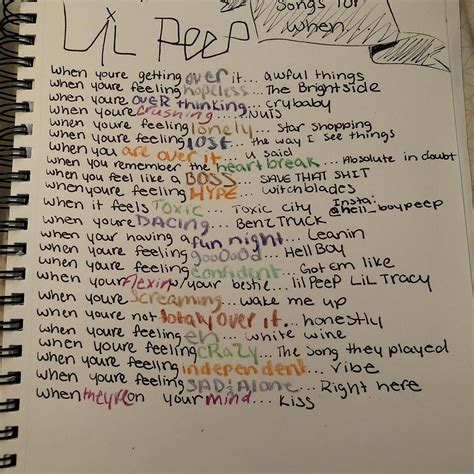 LiL PEEP
Songs for
when
when youre getting over it... awful things
when youre feeling hopeless... The Brightside
when youre OVER thinking... crybaby
when youre crushing... NUTS
when youre feeling lonely... Star shopping
when youre feeling lost... the way I see things
when you are over it... u said
when you remember the heartbreak... Absolute in doubt
when you feel like a BOSS... SAVE THAT SHIT
when youre feeling HYPE... witchblades
when it feels Toxic... Toxic city
Insta:
@hell_boypeep
when youre DACING... BENZ TRUCK
when your having a fun night... Leanin
when youre feeling gooOood... Hell Boy
when youre feeling confident... Got em like
when your flexin w/your bestie... lil Peep LiL Tracy
when youre screaming... wake me up
when youre not totaly over it... honestly
when youre feeling eh... white wine
when youre feeling CRAZY... The song they played
when youre feeling independent... vibe
when youre feeling SAD/Alone... Right here
when theyre on your mind... kiss